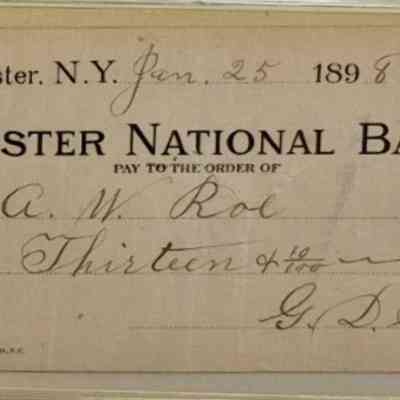 ster, N.Y. Jan. 25 1898
STER NATIONAL BA
PAY TO THE ORDER OF
A. W. Roe
Thirteen & 10/100
G. D.